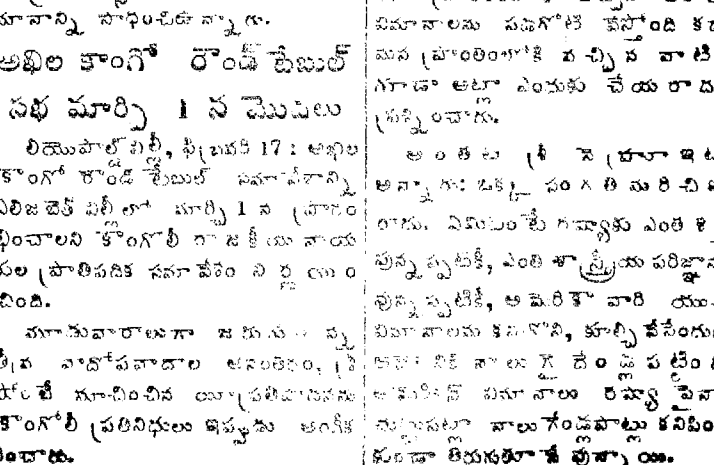 మానాన్ని సాధించిడి న్నా రు.
అఖిల కాంగో రౌండ్ టేబుల్
సభ మార్చి 1 న మొదలు
లియొపాల్డ్ విల్లీ, ఫిబ్రవరి 17 : అఖిల
కాంగో రౌండ్ టేబుల్ సమావేశాన్ని
ఎలిజబెత్ విల్లీ లో మార్చి 1 న ప్రారం
భించాలని కాంగోలీ రాజకీయ నాయ
కుల ప్రాతిపదిక సమావేశం నిర్ణయిం
చింది.
మూడువారాలుగా జరుగు న్న
వాదోపవాదాల అనంతరం,
సూచించిన యీ ప్రతిపాదనను
కాంగోలీ ప్రతినిధులు ఇప్పుడు అంగీక
రించారు.
విమానాలను పడగొటి వేస్తోంది
మన ప్రాంతంలోకి వచ్చిన వాటి
గూడా అట్లా ఎందుకు చేయరాద
ప్రశ్నించారు.
అంతట శ్రీ నెహ్రూ ఇ
అన్నారు: ఒక్క సంగతి మరిచి
రాదు. ఏమిటంటే రష్యాకు ఎంత
వున్నప్పటికీ, ఎంత శాస్త్రీయ పరిజ్ఞాన
వున్నప్పటికీ, అమెరికా వారి యు
విమానాలను కనుగొని, కూల్చి వేసేందు
నాలుగైదేండ్ల పట్టిం
అమెరికన్ విమానాలు రష్యా పైన
నాలుగేండ్లపాటు కనిపిం
కుండా తిరుగుతూనే వున్నాయి.